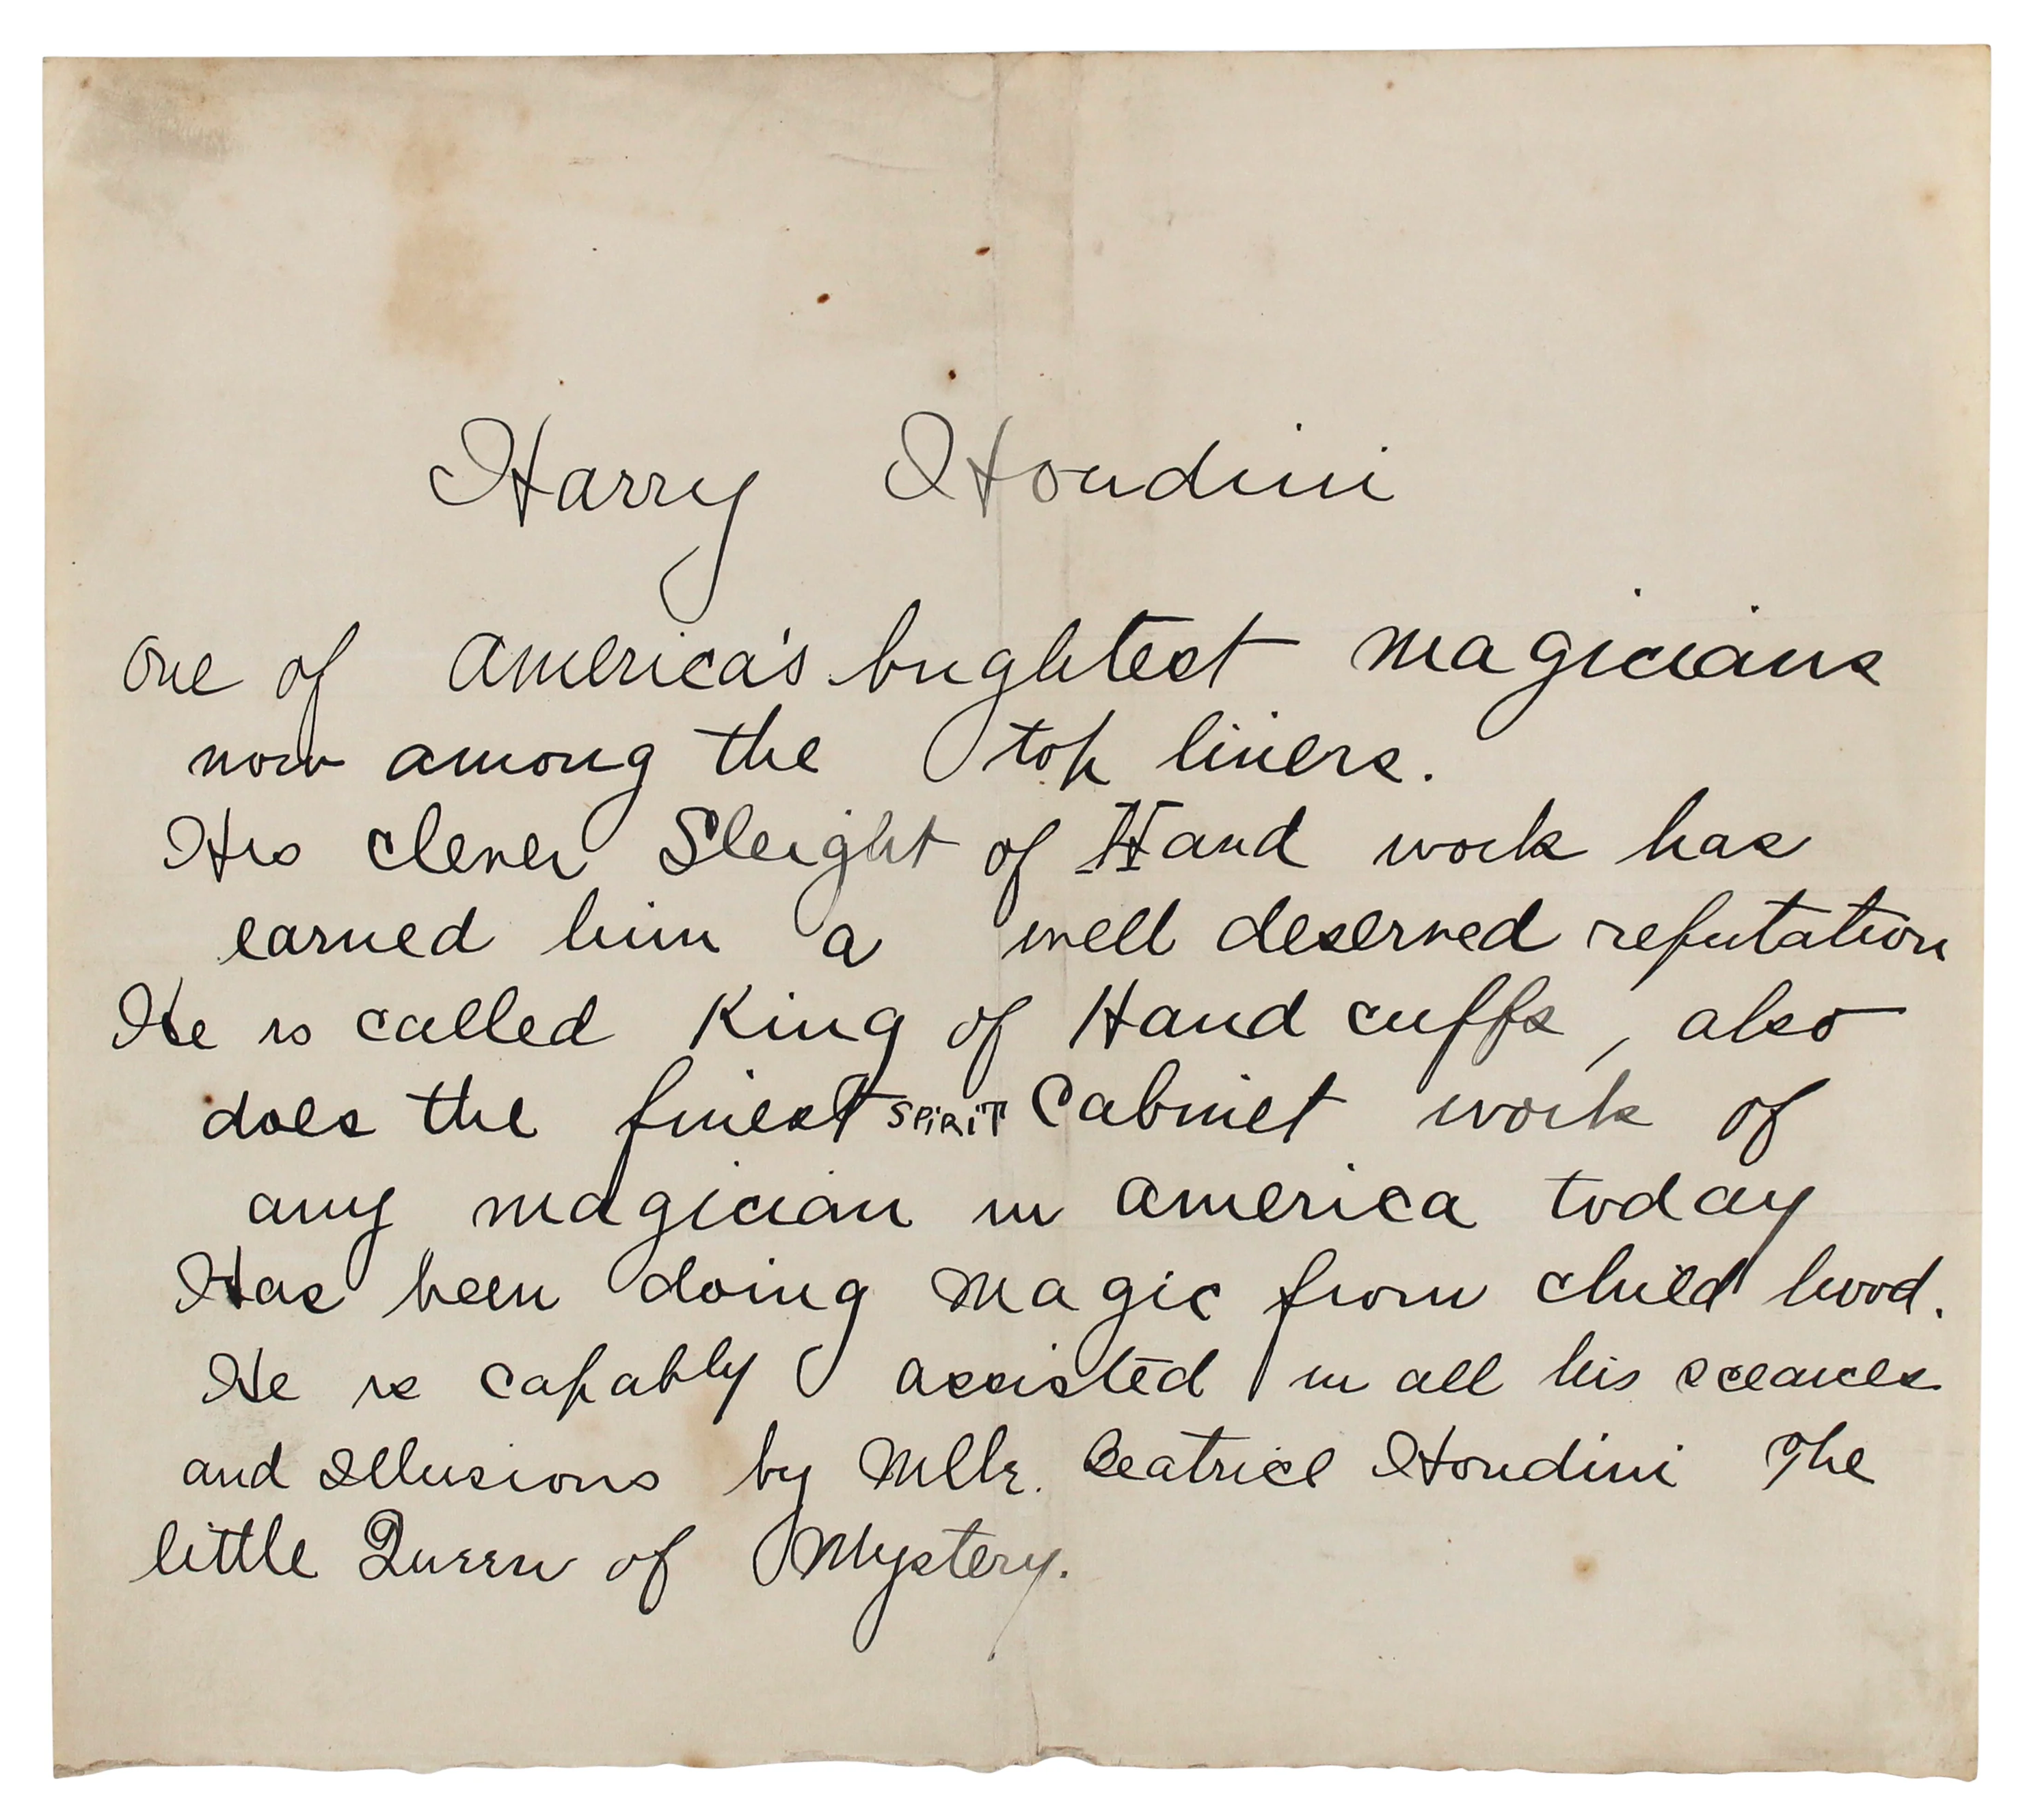 Harry Houdini
One of America's brightest magicians
now among the top liners.
His clever Sleight of Hand work has
earned him a well deserved reputation
He is called King of Hand cuffs, also
does the finest SPiRiT Cabinet work of
any magician in America today
Has been doing magic from child hood.
He is capably assisted in all his sceances
and Illusions by Mlle. Beatrice Houdini The
little Queen of Mystery.